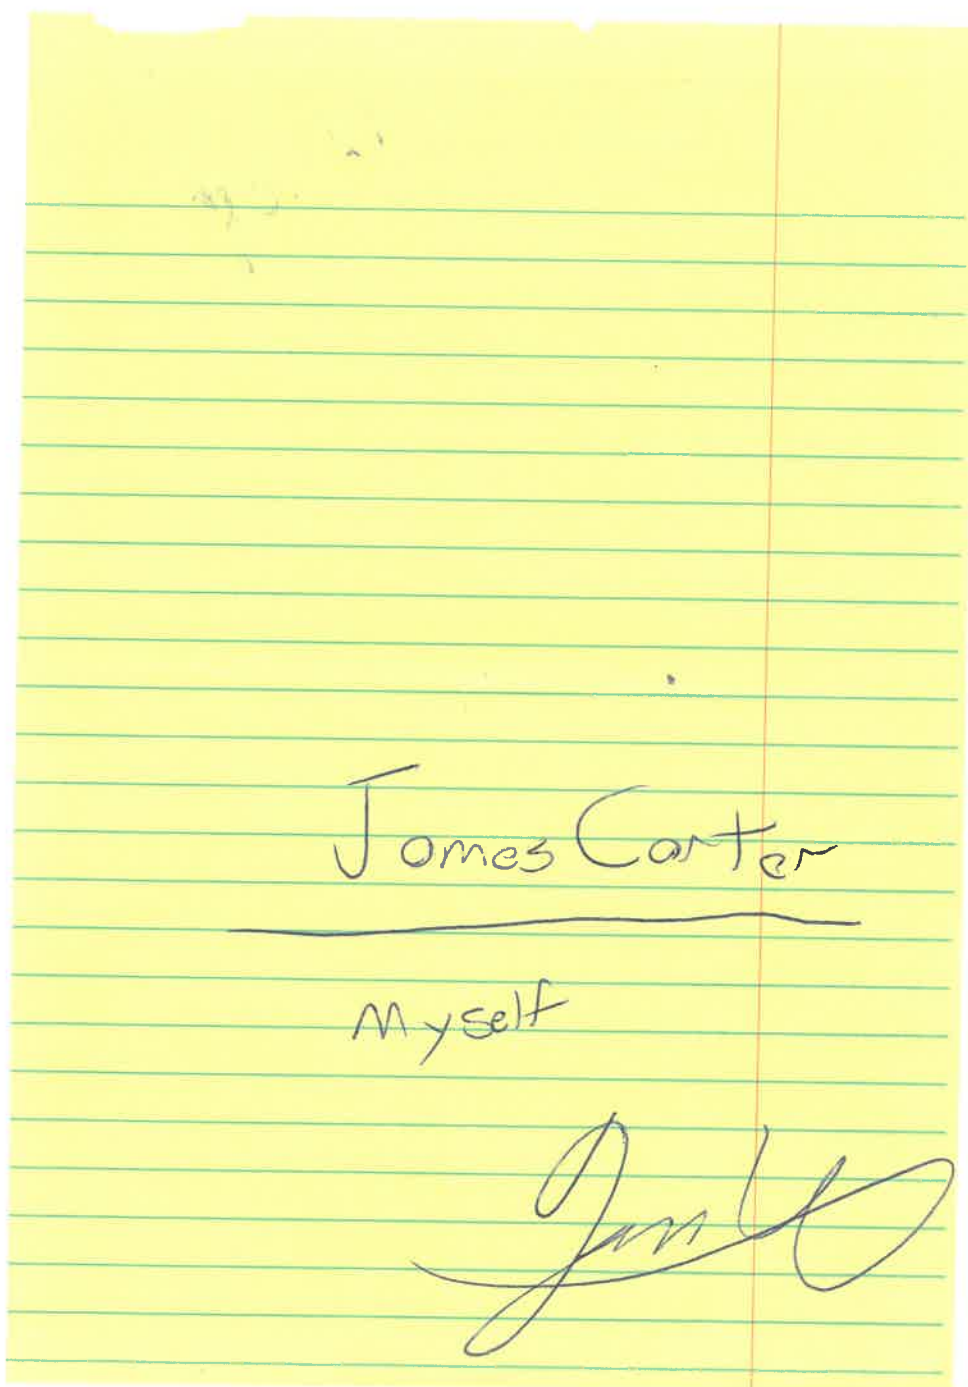 James Carter
Myself